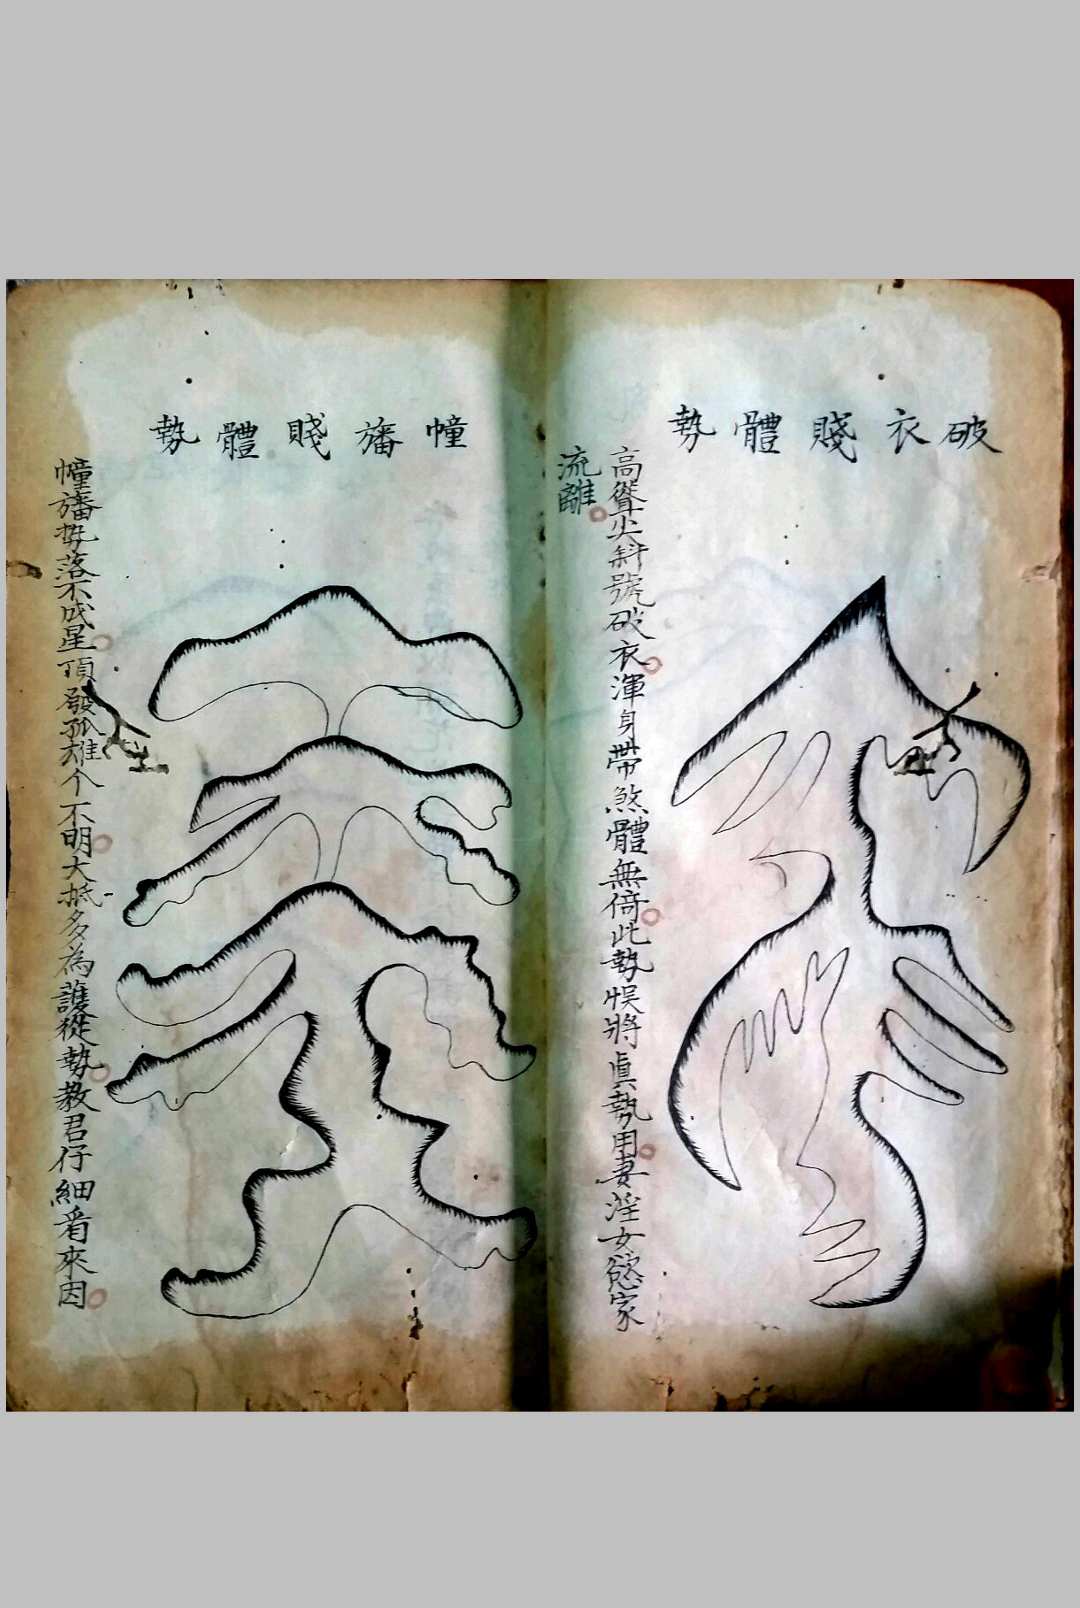 破衣賤體勢
高聳尖斜號破衣渾身帶煞體無倚此勢悞將眞執用妻淫女慾家
流離
幢旛賤體勢
幢旛勢落不成星頂發孤雄个不明大抵多為護從勢教君仔細看來因